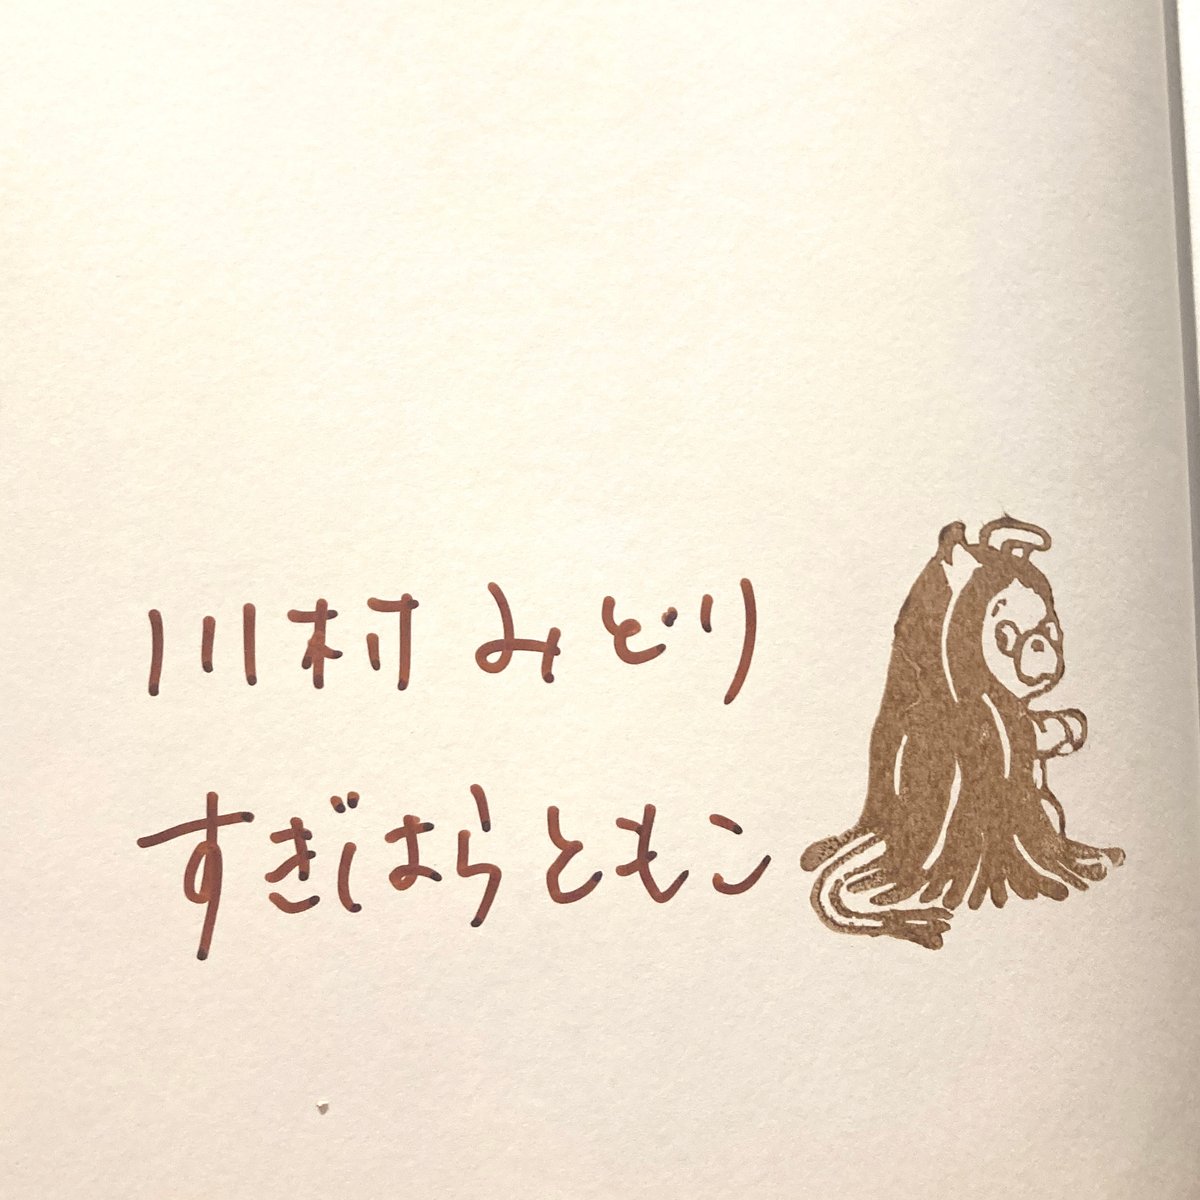 川村みどり
すぎはらともこ